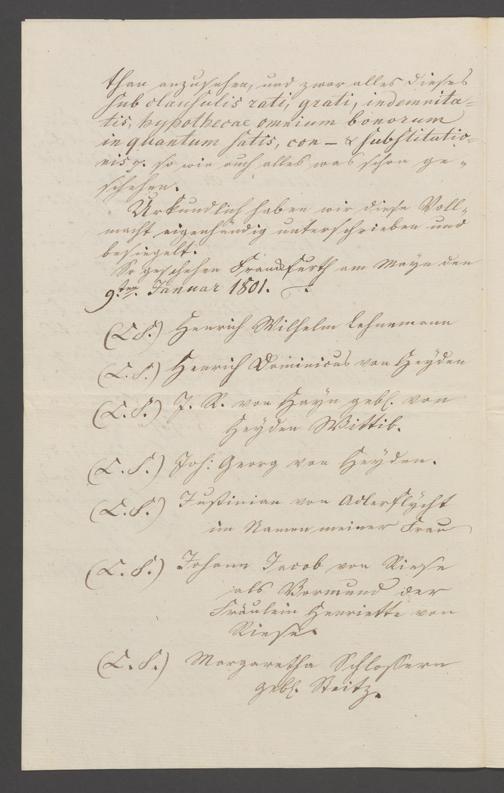 than anzusehen, und zwar alles dieses
sub clausulis rati, grati, indemnita-
tis, hypothecae omnium bonorum
in quantum satis, con- & substitutio-
nis p. so wie auch alles was schon ge-
schehen.
Urkundlich haben wir diese Voll-
macht eigenhändig unterschrieben und
besiegelt.
So geschehen Frankfurth am Mayn den
9ten Januar 1801.
(L.S.) Henrich Wilhelm Lehnemann
(L.S.) Henrich Dominicus von Heyden
(L.S.) J. R. von Hayn geb. von
Heyden Wittib.
(L.S.) Joh: Georg von Heyden.
(L.S.) Justinian von Adlerflycht
im Namen meiner Frau
(L.S.) Johann Jacob von Riese
als Vormund der
Fräulein Henriette von
Riese.
(L.S.) Margaretha Schlossern
geb. Steitz.